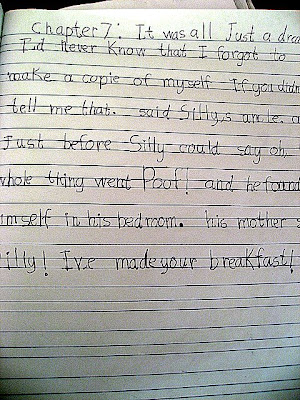 Chapter 7: It was all Just a drea
I'd Never Know that I forgot to
make a copie of myself If you didn
tell me that. said Silly,s uncle. a
Just before Silly could say oh
whole thing went Poof! and he found
imself in his bedroom. his mother s
illy! I,ve made your breakfast!